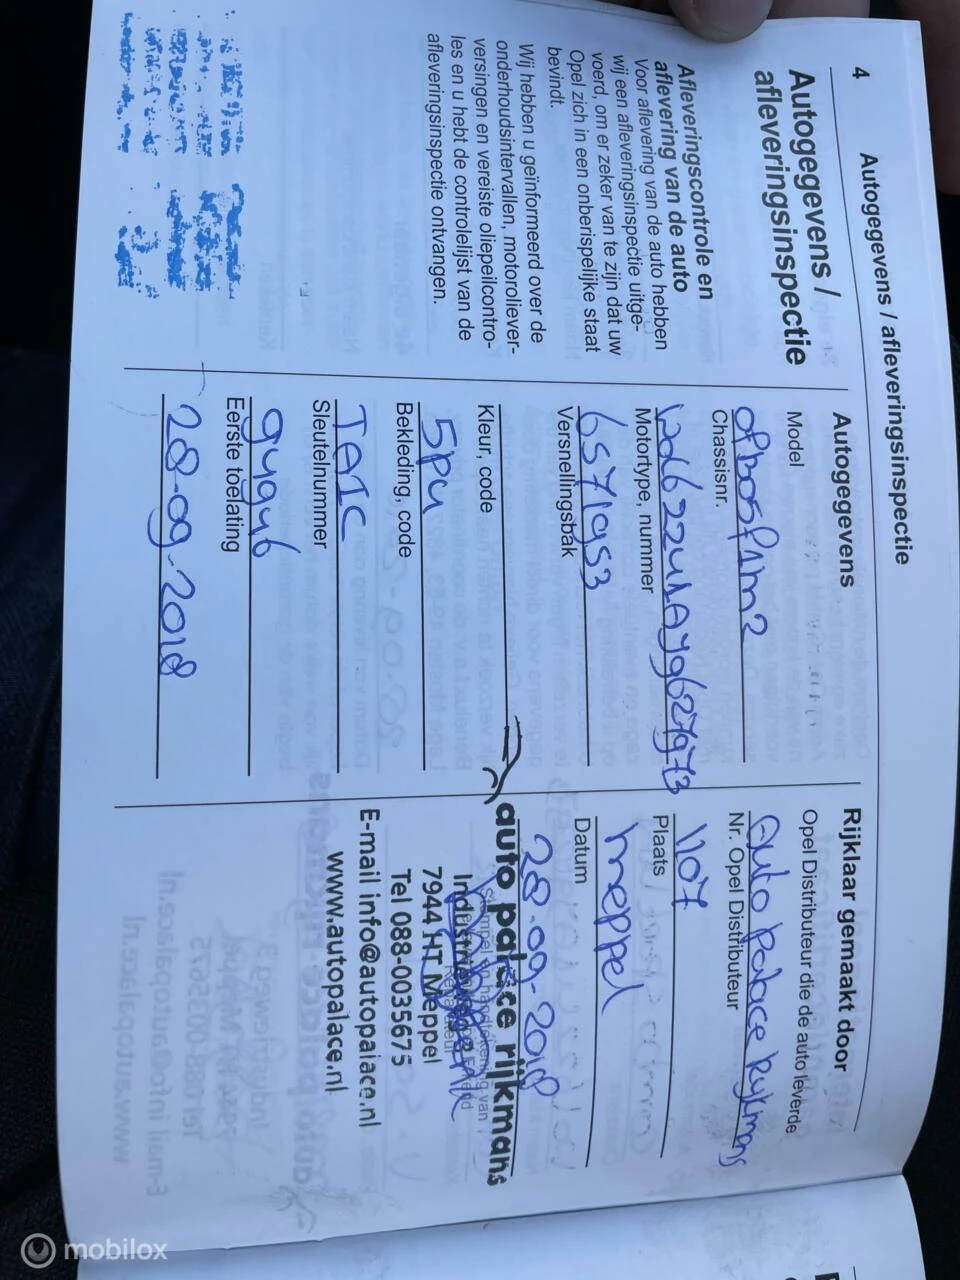 4
Autogegevens / afleveringsinspectie
Autogegevens /
afleveringsinspectie
Afleveringscontrole en
aflevering van de auto
Voor aflevering van de auto hebben
wij een afleveringsinspectie uitge-
voerd, om er zeker van te zijn dat uw
Opel zich in een onberispelijke staat
bevindt.
Wij hebben u geïnformeerd over de
onderhoudsintervallen, motoroliever-
versingen en vereiste oliepeilcontro-
les en u hebt de controlelijst van de
afleveringsinspectie ontvangen.
Autogegevens
Model
Chassisnr.
Motortype, nummer
6S719953
Versnellingsbak
Kleur, code
5pu
Bekleding, code
TAIC
Sleutelnummer
Eerste toelating
28-09-2018
Rijklaar gemaakt door
Opel Distributeur die de auto leverde
auto palace rijkmans
Nr. Opel Distributeur
1107
Plaats
meppel
Datum
28-09-2018
auto palace rijkmans
7944 HT Meppel
Tel 088-0035675
E-mail info@autopalace.nl
www.autopalace.nl
mobilox